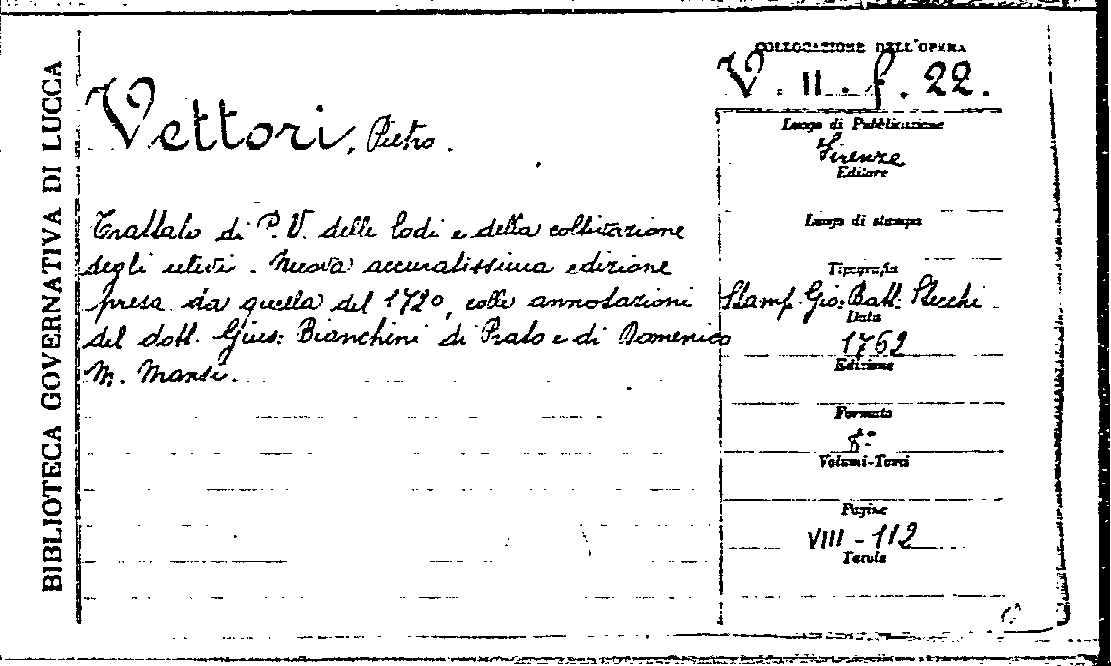 BIBLIOTECA GOVERNATIVA DI LUCCA
COLLOCAZIONE DELL'OPERA
V. II. f. 22.
Vettori, Pietro.
Luogo di Pubblicazione
Firenze
Editore
Luogo di stampa
Tipografia
Stamp. Gio: Batt: Stecchi
Data
1762
Edizione
Formato
8°
Volumi-Tomi
Pagine
VIII - 112
Tavole
Trattato di P. V. delle lodi e della coltivazione
degli ulivi. Nuova accuratissima edizione
presa da quella del 1720, colle annotazioni
del dott. Gius: Bianchini di Prato e di Domenico
M. Manni.